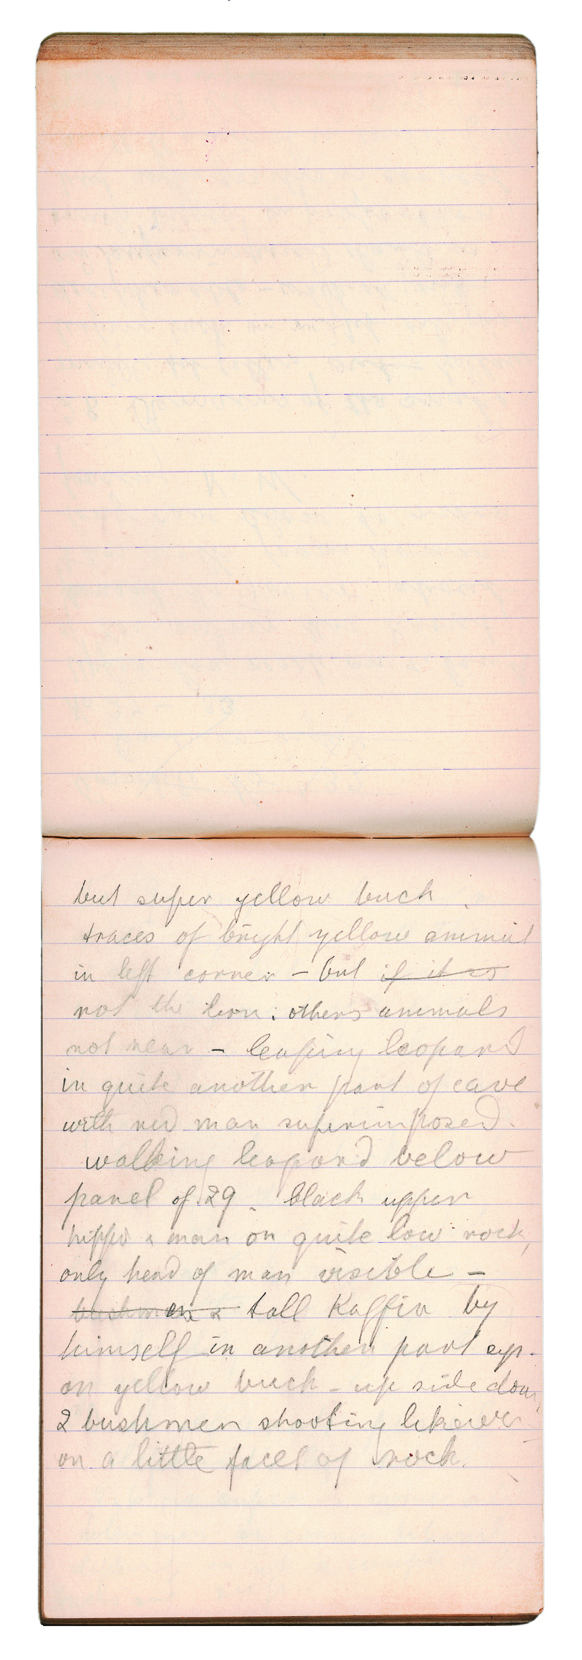 but super yellow buck.
traces of bright yellow animal
in left corner - but if it is
not the lion. others animals
not near - leaping leopard
in quite another part of cave
with red man superimposed.
walking leopard below
panel of 29. black upper
hippo & man on quite low rock,
only head of man visible -
bushmen & tall Kaffir by
himself in another part sup.
on yellow buck - up side down,
2 bushmen shooting
on a little facet of rock.